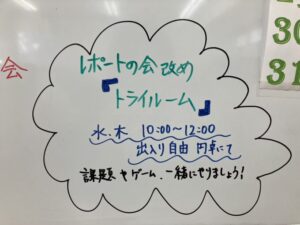 レポートの会 改め
『トライルーム』
水、木 10:00~12:00
出入り自由 円卓にて
課題やゲーム、一緒にやりましょう!
会
30
31